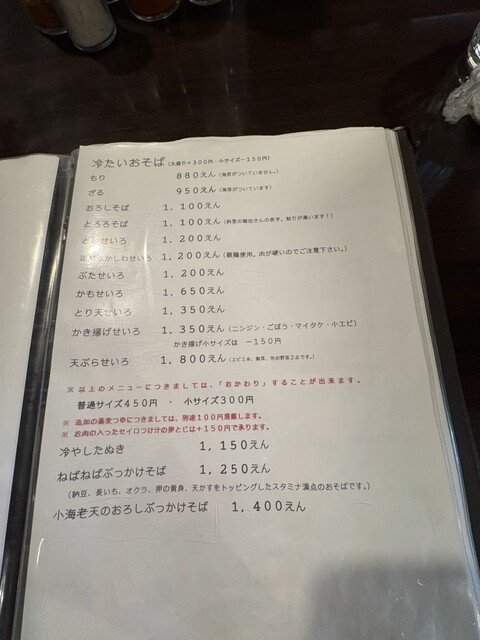 冷たいおそば（大盛り+300円・小サイズー150円）
もり 880えん（海苔がついていません。）
ざる 950えん（海苔がついています）
おろしそば 1,100えん
とろろそば 1,100えん
せいろ 1,200えん
かしわせいろ 1,200えん（親鶏使用。肉が硬いのでご注意下さい。）
ぶたせいろ 1,200えん
かもせいろ 1,650えん
とり天せいろ 1,350えん
かき揚げせいろ 1,350えん（ニンジン・ごぼう・マイタケ・小エビ）
かき揚げ小サイズは ー150円
天ぷらせいろ 1,800えん
※以上のメニューにつきましては、「おかわり」することが出来ます。
普通サイズ450円 ・ 小サイズ300円
※ 追加の蕎麦つゆにつきましては、別途100円頂戴します。
※ お肉の入ったセイロつけ汁の卵とじは+150円で承ります。
冷やしたぬき 1,150えん
ねばねばぶっかけそば 1,250えん
（納豆、長いも、オクラ、卵の黄身、天かすをトッピングしたスタミナ満点のおそばです。）
小海老天のおろしぶっかけそば 1,400えん